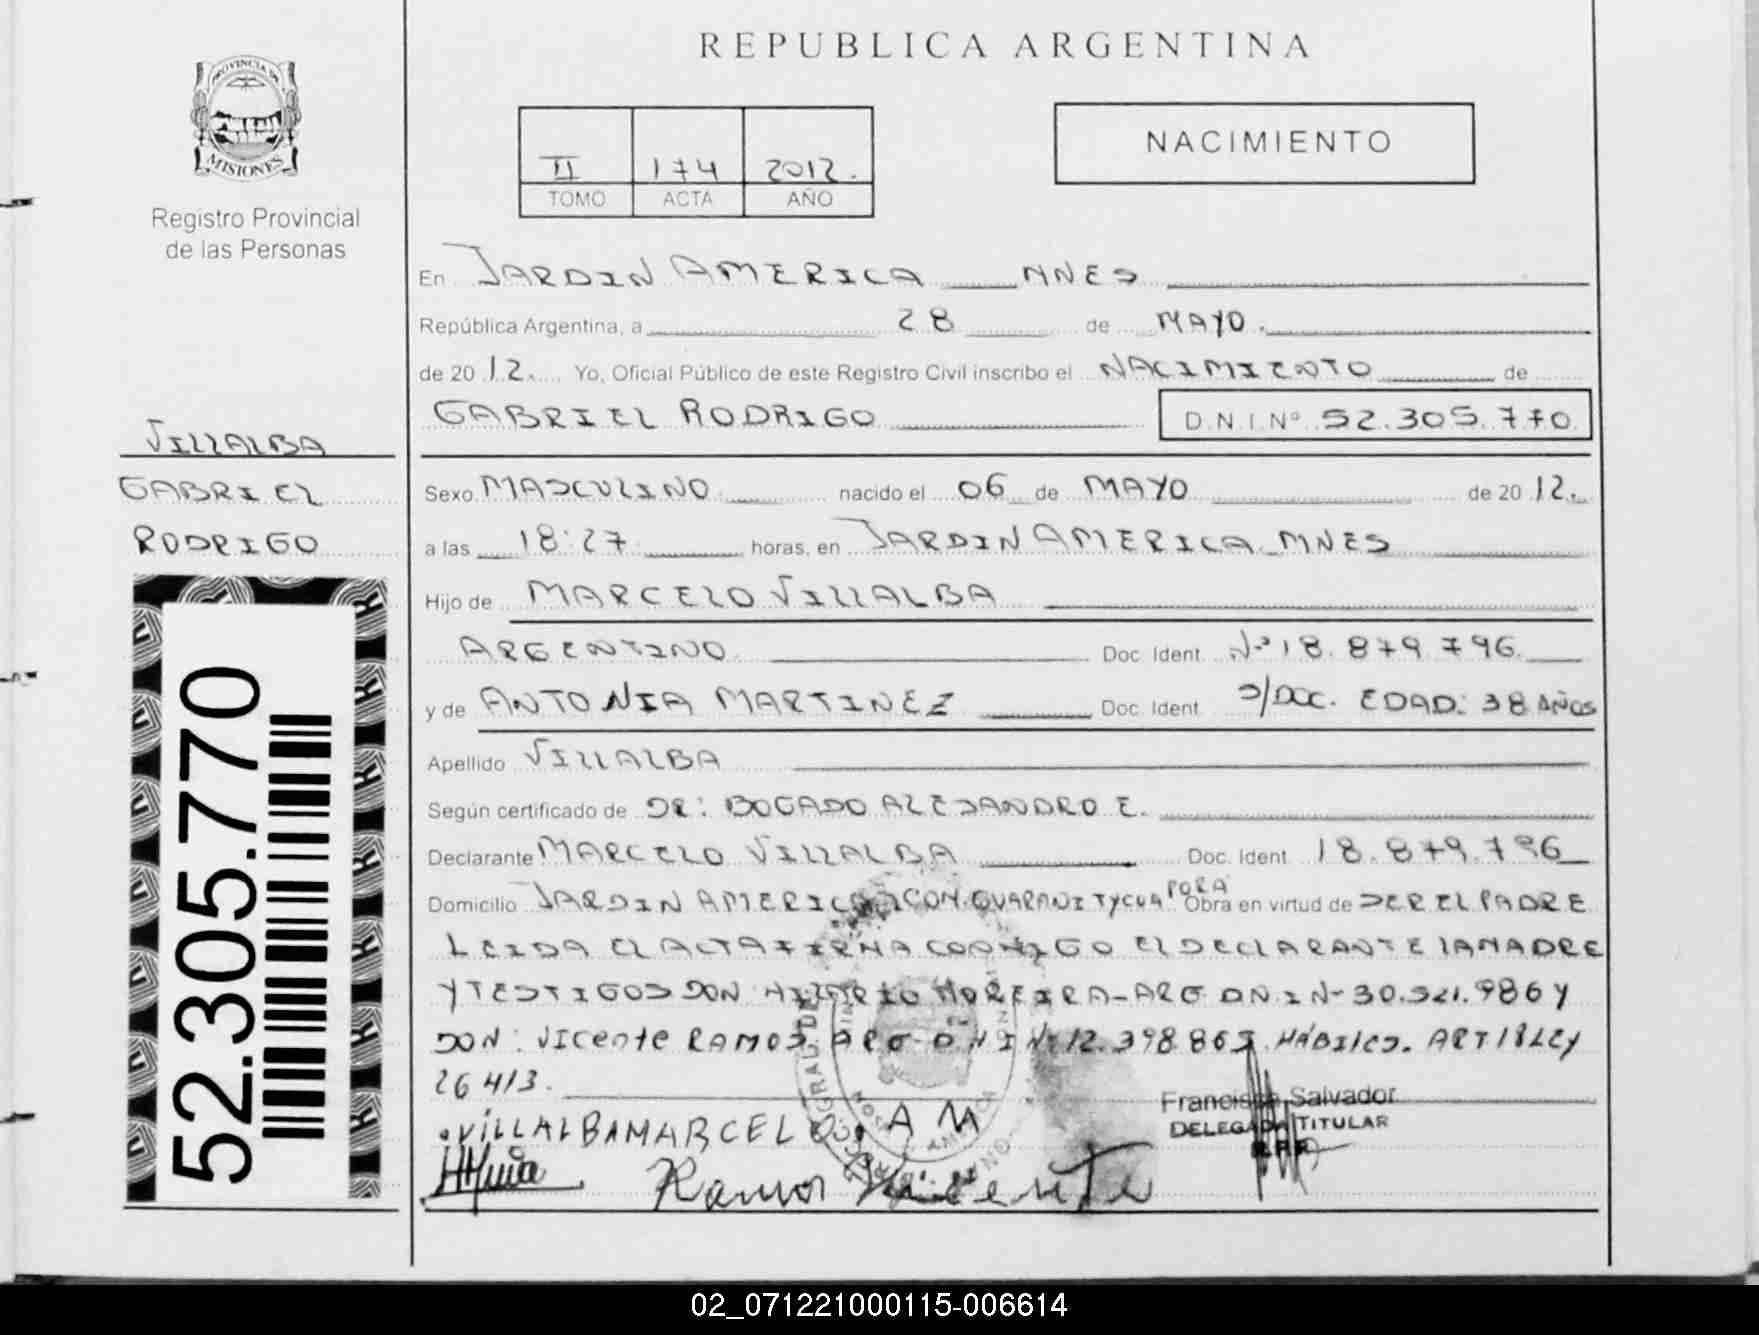 REPUBLICA ARGENTINA
PROVINCIA DE
MISIONES
Registro Provincial
de las Personas
II 174 2012.
TOMO ACTA AÑO
NACIMIENTO
En JARDIN AMERICA MNES
República Argentina, a 28 de MAYO.
de 2012. Yo, Oficial Público de este Registro Civil inscribo el NACIMIENTO de
GABRIEL RODRIGO D.N.I.Nº 52.305.770
VILLALBA
GABRIEL
RODRIGO
Sexo MASCULINO nacido el 06 de MAYO de 2012.
a las 18:27 horas, en JARDIN AMERICA MNES
Hijo de MARCELO VILLALBA
ARGENTINO Doc. Ident. Nº 18.879.796.
y de ANTONIA MARTINEZ Doc. Ident. S/DOC. EDAD: 38 AÑOS
Apellido VILLALBA
Según certificado de DR: BOGADO ALEJANDRO E.
Declarante MARCELO VILLALBA Doc. Ident. 18.879.796
Domicilio JARDIN AMERICA COM. GUARANI TYCUA PORA Obra en virtud de SER EL PADRE
LEIDA EL ACTA FIRMA CONMIGO EL DECLARANTE LA MADRE
Y TESTIGOS DON HILARIO MOREIRA-ARG DNI N-30.521.986 Y
DON: Vicente RAMOS ARG-DNI Nº 12.398.863 HÁBILES. ART 18 LEY
26413.
52.305.770
Francisco Salvador
DELEGADA TITULAR
R.P.P.
VILLALBA MARCELO A M
Ramos Vicente
02_071221000115-006614